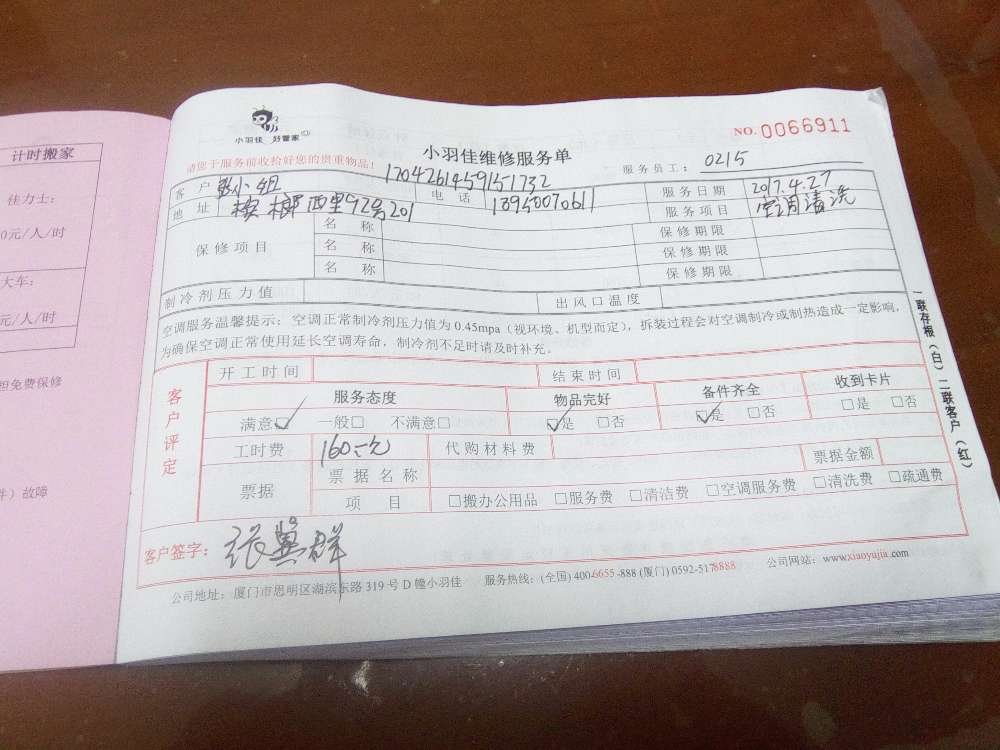 计时搬家
佳力士:
0元/人/时
大车:
元/人/时
担免费保修
件）故障
小羽佳 好管家
NO. 0066911
请您于服务前收拾好您的贵重物品!
小羽佳维修服务单
服务员工: 0215
1704261459151732
客户 张小姐 电话 13950070611 服务日期 2017.4.27
地址 槟榔西里92号201 服务项目 空调清洗
保修项目
名称 保修期限
名称 保修期限
名称 保修期限
制冷剂压力值 出风口温度
空调服务温馨提示: 空调正常制冷剂压力值为 0.45mpa（视环境、机型而定），拆装过程会对空调制冷或制热造成一定影响,
为确保空调正常使用延长空调寿命，制冷剂不足时请及时补充。
一联存根（白）二联客户（红）
客户评定
开工时间 结束时间
服务态度 物品完好 备件齐全 收到卡片
满意☑ 一般□ 不满意□ ☑是 □否 ☑是 □否 □是 □否
工时费 160元 代购材料费
票据 票据名称 票据金额
项目 □搬办公用品 □服务费 □清洁费 □空调服务费 □清洗费 □疏通费
客户签字:
公司地址: 厦门市思明区湖滨东路 319 号 D 幢小羽佳 服务热线: (全国) 400-6655-888 (厦门) 0592-5178888 公司网站: www.xiaoyujia.com